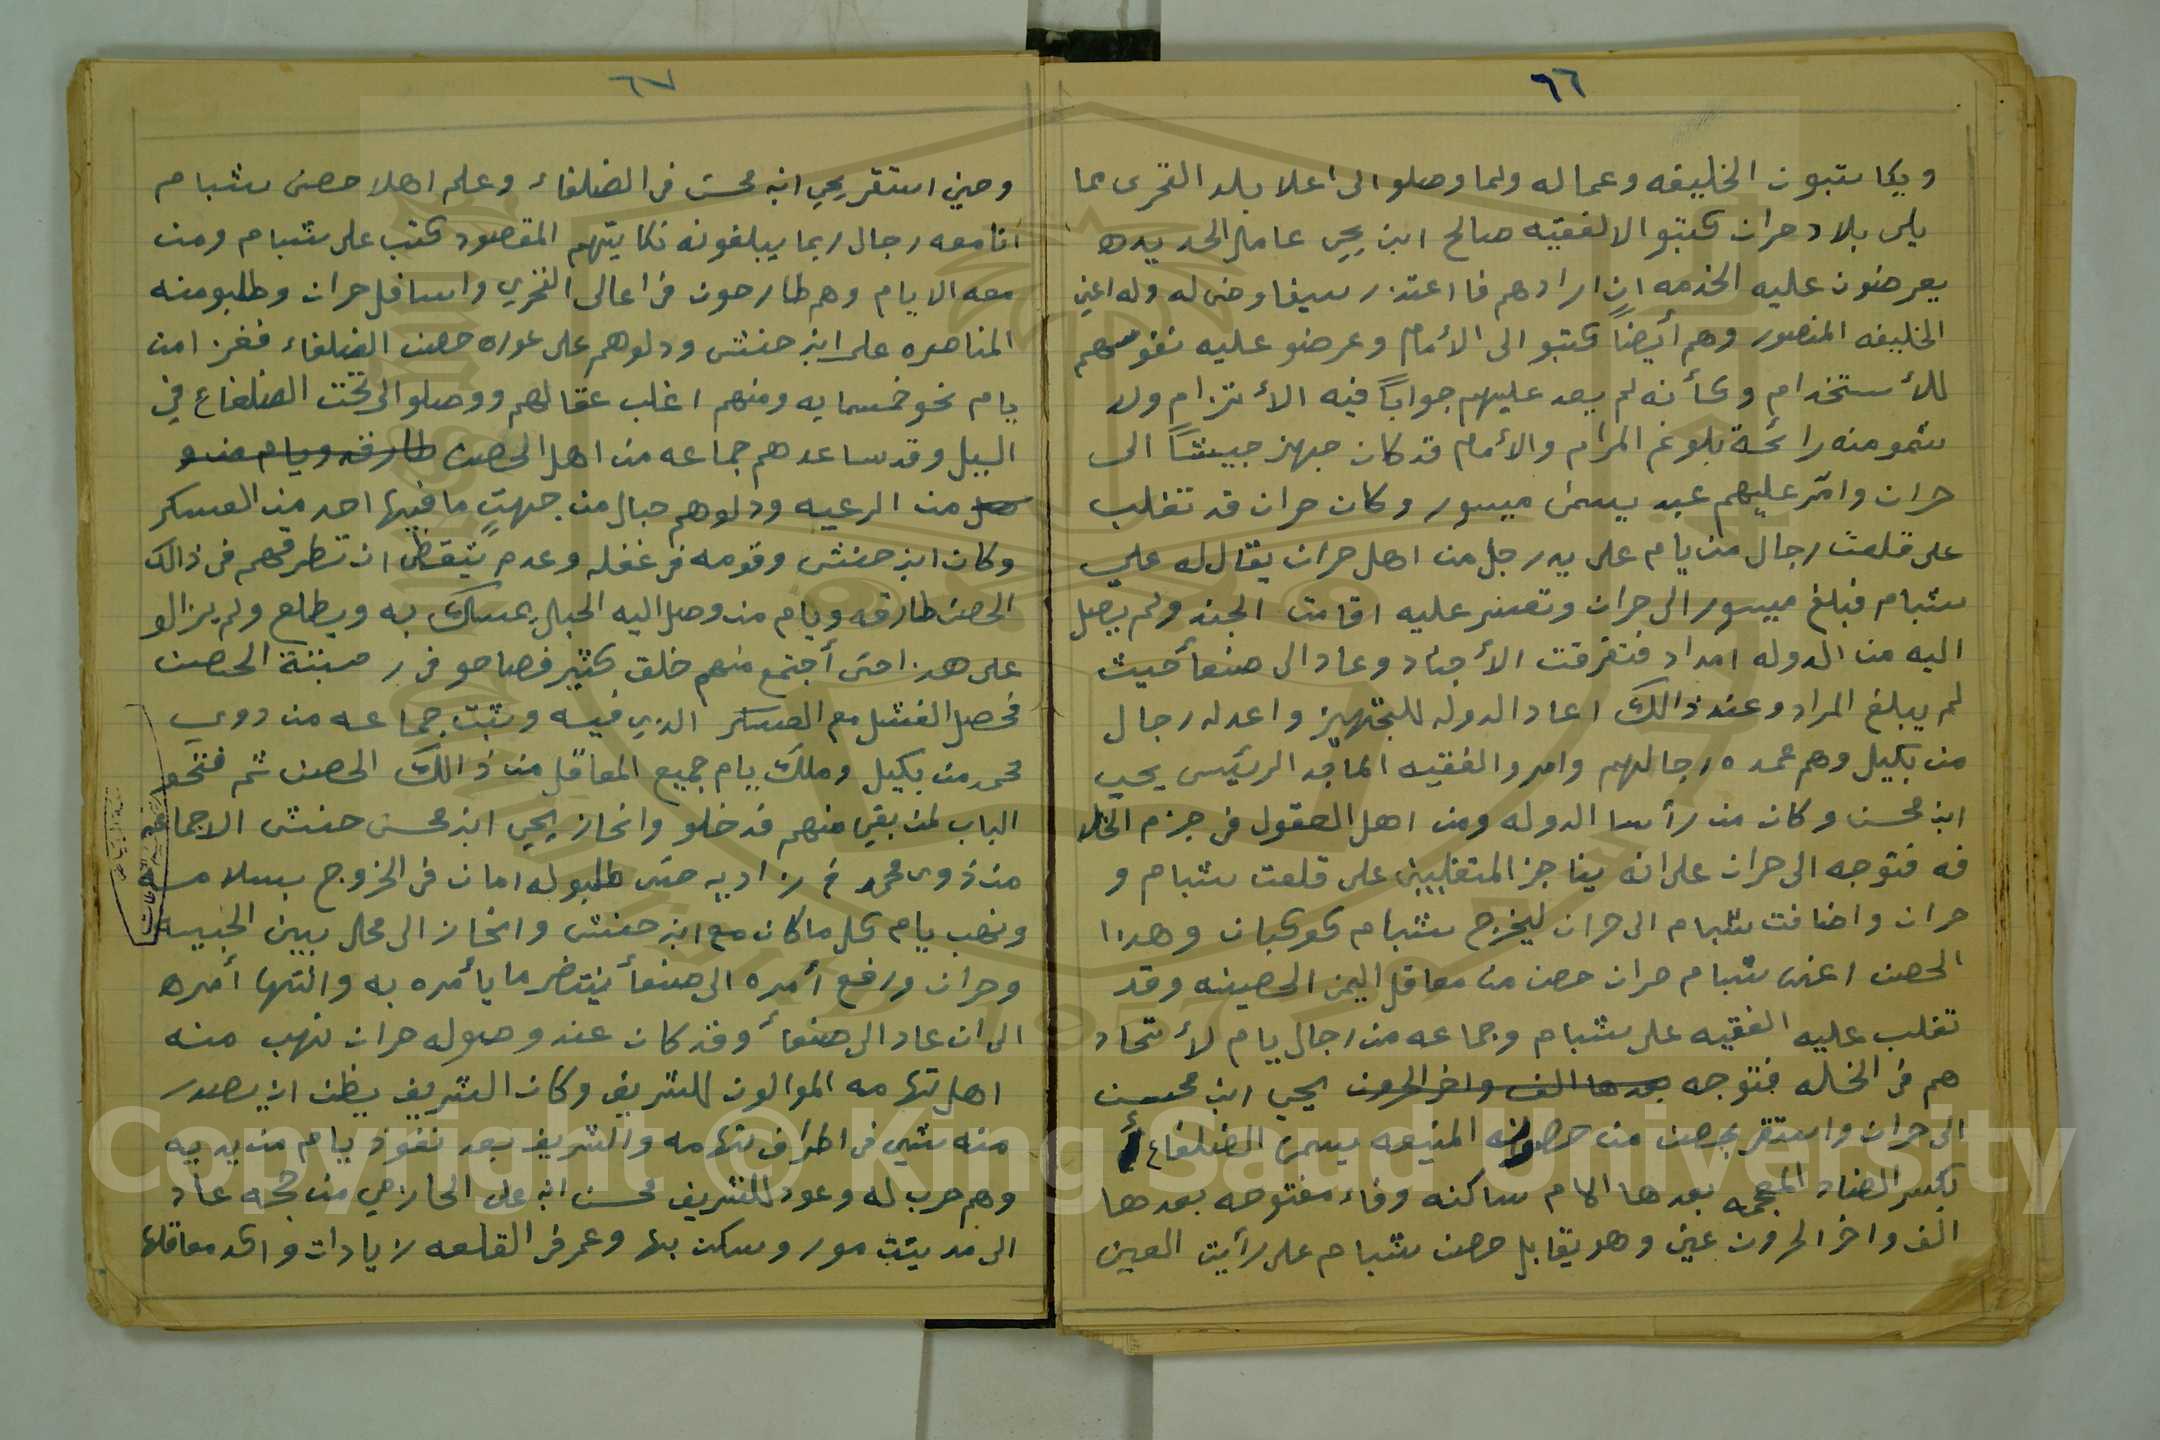 ٦٦
ويكاتبون الخليفه وعماله ولما وصلو الى اعلا بلد القحرى مما
يلى بلاد حراز كتبو الا لفقيه صالح ابن يحيى عامل الحديده
يعرضون عليه الخدمه ان ارادهم فااعتذر سيفاوضى له وله اعني
الخليفه المنصور وهم أيضاً كتبو الى الأمام وعرضو عليه نفوسهم
للأستخدام وكأنه لم يعد عليهم جواباً فيه الألتزام ولا
شمو منه رائحة بلوغ المرام والأمام قد كان جهز جيشاً الى
حراز وامّر عليهم عبد يسمى ميسور وكان حراز قد تغلب
على قلعت رجال من يام على يد رجل من اهل حراز يقال له علي
شبام فبلغ ميسور الى حراز وتعسر عليه اقامت الجند ولم يصل
اليه من الدوله امداد فتفرقت الأجناد وعاد الى صنعأ حيث
لم يبلغ المراد وعند ذالك اعاد الدوله للتجهيز واعد له رجال
من بكيل وهم عمده رجالهم وامرو الفقيه الماجد الرئيس يحيى
ابن محسن وكان من رأسا الدوله ومن اهل العقول في جزم الخلا
فه فتوجه الى حراز على انه يناجز المتغلبين على قلعت شبام و
حراز واضافت شبام الى حراز ليخرج شبام كوكبان وهذا
الحصن اعنى شبام حراز حصن من معاقل اليمن الحصينه وقد
تغلب عليه الفقيه على شبام وجماعه من رجال يام لأتحاد
هم في الخله فتوجه بعدها الف واخر الحروف يحيى ابن محسن
الى حراز واستقر بحصن من حصونه المنيعه يسمى الضلفاع أ
بكسر الضاد المعجمه بعدها الام ساكنه وفاء مفتوحه بعدها
الف واخر الحروف عين وهو يقابل حصن شبام على رأيت العين
٦٧
وحين استقر يحيى ابن محسن في الضلفاء وعلم اهلا حصن شبام
انا معه رجال ربما يبلغونه نكايتهم المقصود كتب على شبام ومن
معه الا يام وهم طارحون في اعالى القحري واسافل حراز وطلبو منه
المناصره على ابن حنش ودلوهم على عوره حصن الضلفاء فغزا من
يام نحو خمسمايه ومنهم اغلب عقالهم ووصلو الى تحت الضلفاع في
اليل وقد ساعدهم جماعه من اهل الحصن طارفه ويام من و
صل من الرعيه ودلوهم حبال من جهتٍ ما فيها احد من العسكر
وكان ابن حنش وقومه في غفله وعدم يتقظ ان تطرقهم في ذالك
الحصن طارقه ويام من وصل اليه الحبل يمسك به ويطلع ولم يزالو
على هذا حتى أجتمع منهم خلق كثير فصاحو في ر الحصن
فحصل الفشل مع العسكر الذي فيه وثبت جماعه من ذوي
محمد من بكيل وملك يام جميع المعاقل من ذالك الحصن ثم فتحو
الباب لمن بقي منهم فدخلو وانحاز يحيى ابن محسن حنش الا جما
من ذوى محمد في زاديه حتى طلبو له امان في الخروج بسلامه
ونهب يام كل ما كان مع ابن حنش وانحاز الى محل بين الجبيه
وحراز ورفع أمره الى صنعأ ينتضر ما يأمره به وانتها أمره
الى ان عاد الى صنعأ وقد كان عند وصوله حراز نهب منه
اهل تهامه الموالون للشريف وكان الشريف يظن ان يصدر
منه شي في اطراف تهامه والشريف بعد نفوذ يام من يديه
وهم حرب له وعود للشريف محسن ابن على الحازمي من حجه عاد
الى مدينت مور وسكن بها وعمر في القلعه زيادات واكد معاقلها
Copyright © King Saud University
1957